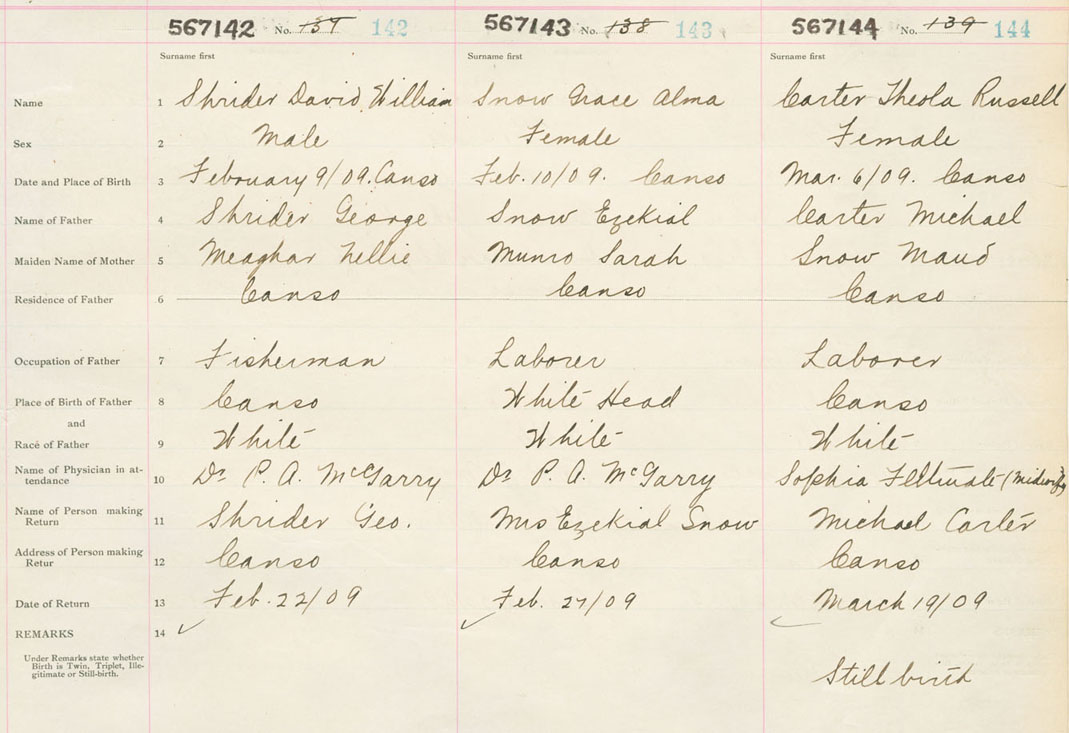 567142 No. 137 142 567143 No. 138 143 567144 No. 139 144
Surname first Surname first Surname first
Name 1 Shrider David William Snow Grace Alma Carter Theola Russell
Sex 2 Male Female Female
Date and Place of Birth 3 February 9/09. Canso Feb. 10/09. Canso Mar. 6/09. Canso
Name of Father 4 Shrider George Snow Ezekial Carter Michael
Maiden Name of Mother 5 Meaghar Nellie Munro Sarah Snow Maud
Residence of Father 6 Canso Canso Canso
Occupation of Father 7 Fisherman Laborer Laborer
Place of Birth of Father 8 Canso White Head Canso
and
Race of Father 9 White White White
Name of Physician in at-
tendance 10 Dr P. A. McGarry Dr P. A. McGarry Sophia Feltmate (Midwife)
Name of Person making
Return 11 Shrider Geo. Mrs Ezekial Snow Michael Carter
Address of Person making
Retur 12 Canso Canso Canso
Date of Return 13 Feb. 22/09 Feb. 27/09 March 19/09
REMARKS 14
Under Remarks state whether
Birth is Twin, Triplet, Ille-
gitimate or Still-birth.
Still birth